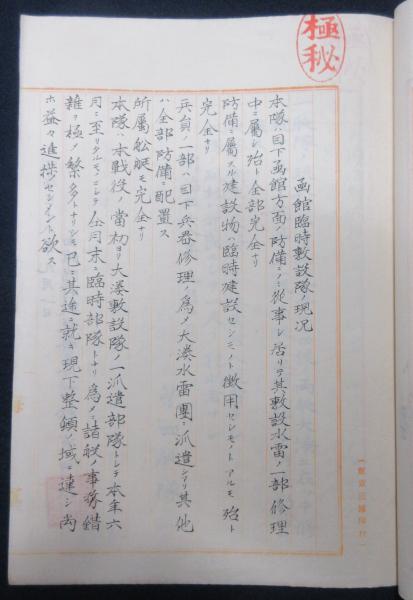 極秘
函館臨時敷設隊ノ現况
本隊ハ目下函館方面ノ防備ニノミ從事シ居リテ其敷設水雷ノ一部修理
中ニ属シ殆ト全部完全ナリ
防備ニ属スル建設物ハ臨時建設セシモノト徴用セシモノトアルモ殆ト
完全ナリ
兵員ノ一部ハ目下兵器修理ノ為メ大湊水雷團ニ派遣シアリ其他
ハ全部防備ニ配置ス
所属舩艇モ完全ナリ
本隊ハ本戦役ノ當初ヨリ大湊敷設隊ノ一派遣部隊トシテ本年六
月ニ至リタルモノニシテ仝月末ニ臨時部隊トナリ為メニ諸般ノ事務錯
雑ヲ極メ繁多ナリシモ已ニ其途ニ就キ現下整頓ノ域ニ達シ尚
ホ益々進捗センコトヲ欲ス